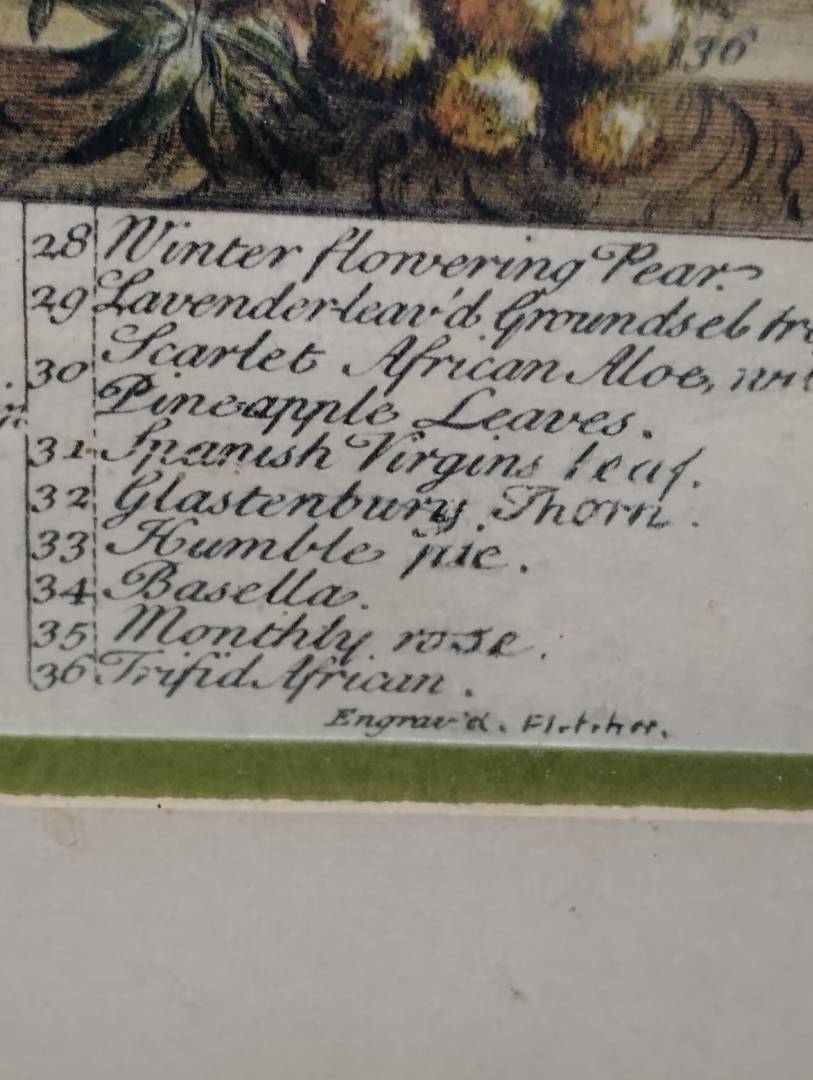 136
28 Winter flowering Pear.
29 Lavender-leav'd Groundsel
30 Scarlet African Aloe,
Pineapple Leaves.
31 Spanish Virgins leaf.
32 Glastenbury Thorn.
33 Humble pie.
34 Basella.
35 Monthly rose.
36 Trifid African.
Engrav'd. Fletcher.